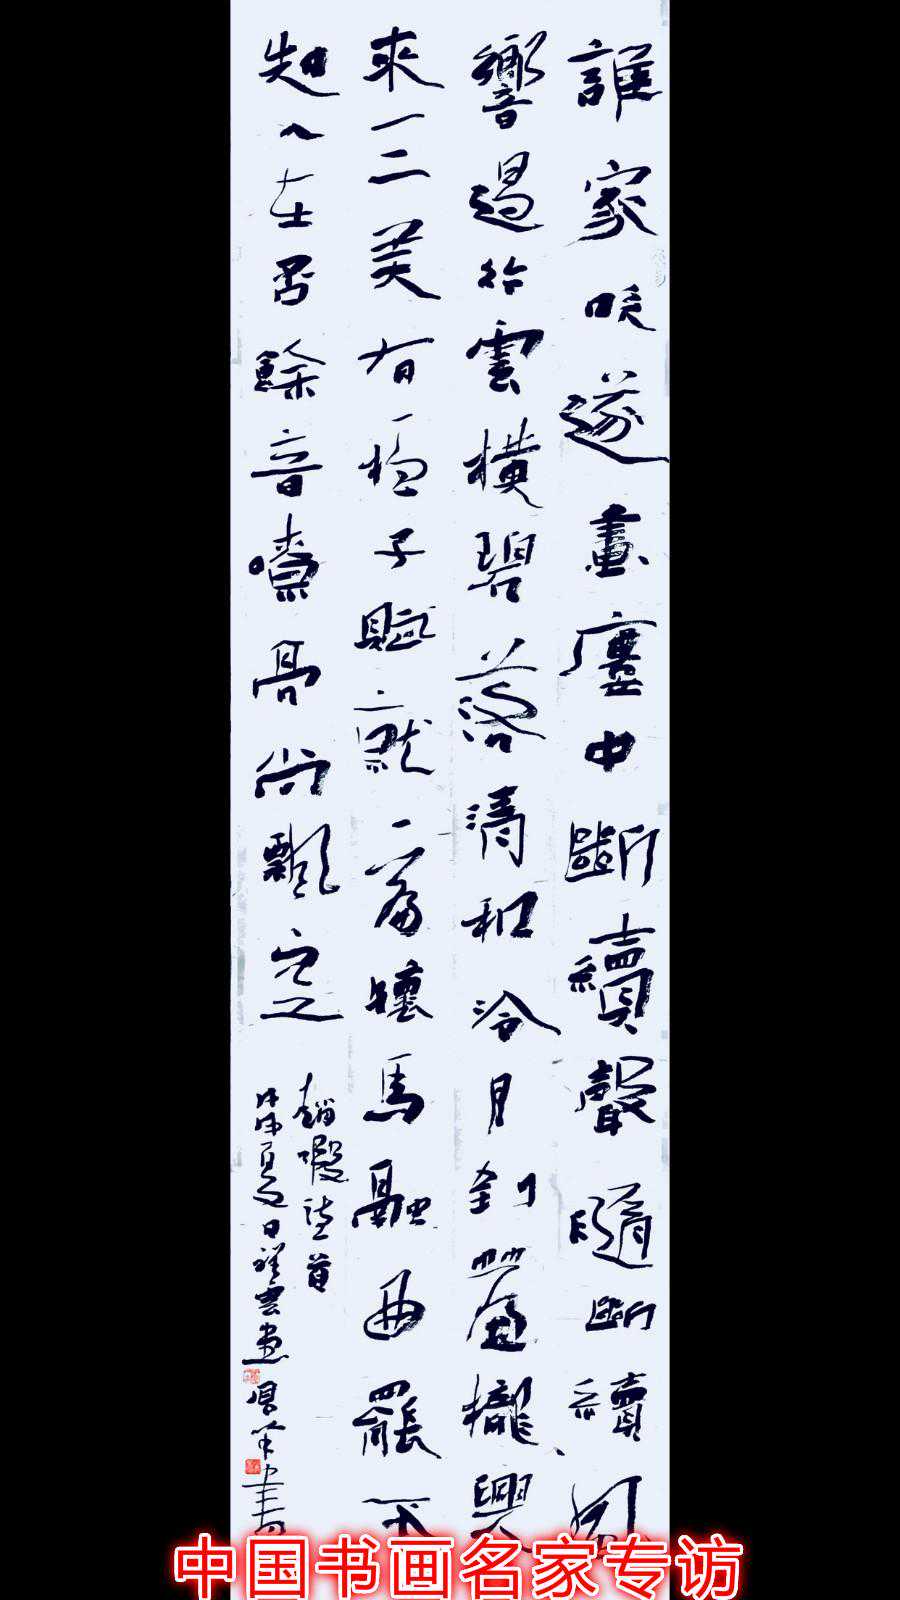 誰家吹遂畫廔中斷續聲隨斷續風
響遏行雲橫碧落清和冷月到簾櫳興
來三弄有桓子賦就一篇懷馬融曲罷不
知人在否餘音嘹亮尚飄空
趙嘏詩一首
戊戌夏日祥雲
中国书画名家专访